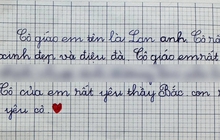 Cô giáo em tên là Lan anh. Cô rấ
xinh đẹp và điệu đà. Cô giáo em rất
Cô của em rất yêu thầy Bắc. con n
yêu cô.